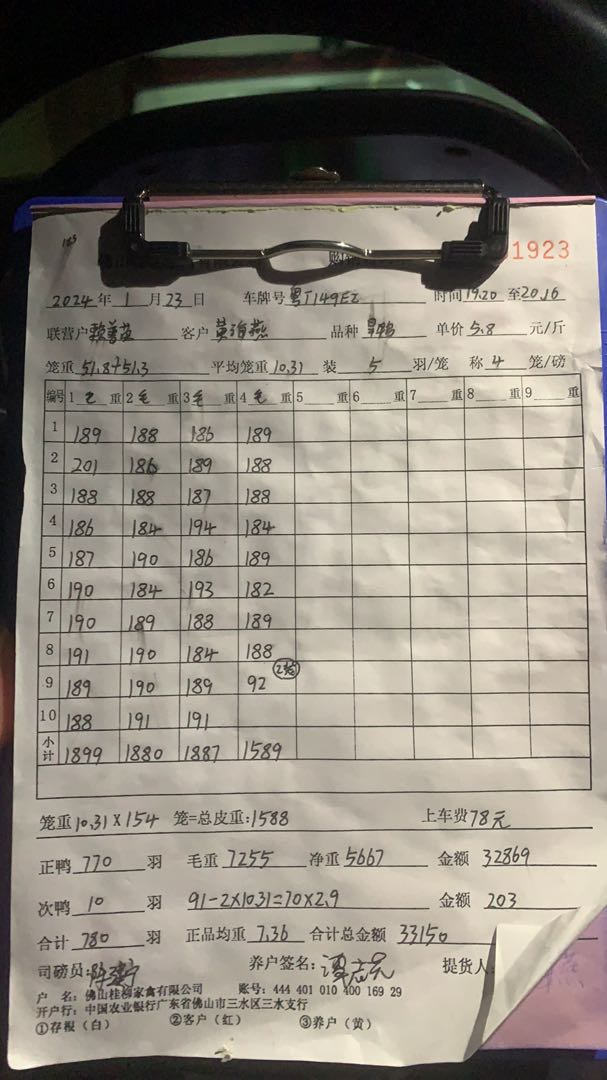 1923
2024年1月23日 车牌号粤T149EZ 时间19.20至20.16
联营户 客户 黄泊燕 品种 单价5.8元/斤
笼重51.8+51.3 平均笼重10.31 装5羽/笼 称4笼/磅
编号 1 毛重 2 毛重 3 毛重 4 毛重 5 重 6 重 7 重 8 重 9 重
1 189 188 186 189
2 201 186 189 188
3 188 188 187 188
4 186 184 194 184
5 187 190 186 189
6 190 184 193 182
7 190 189 188 189
8 191 190 184 188
9 189 190 189 92
10 188 191 191
小计 1899 1880 1887 1589
笼重10.31×154 笼=总皮重:1588 上车费78元
正鸭770羽 毛重7255 净重5667 金额32869
次鸭10羽 91-2×10.31=70×2.9 金额203
合计780羽 正品均重7.36 合计总金额33150
司磅员: 养户签名: 提货人
户 名: 佛山桂柳家禽有限公司 账号: 444 401 010 400 169 29
开户行: 中国农业银行广东省佛山市三水区三水支行
①存根（白） ②客户（红） ③养户（黄）